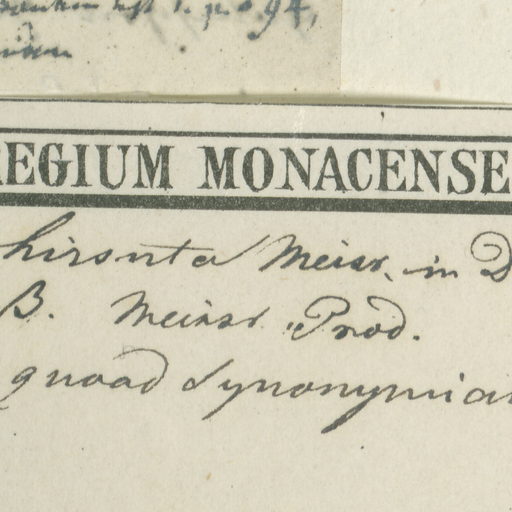 p. 94,
REGIUM MONACENSE
hirsuta Meisn. in D
B. Meisn. Prod.
quoad synonymia